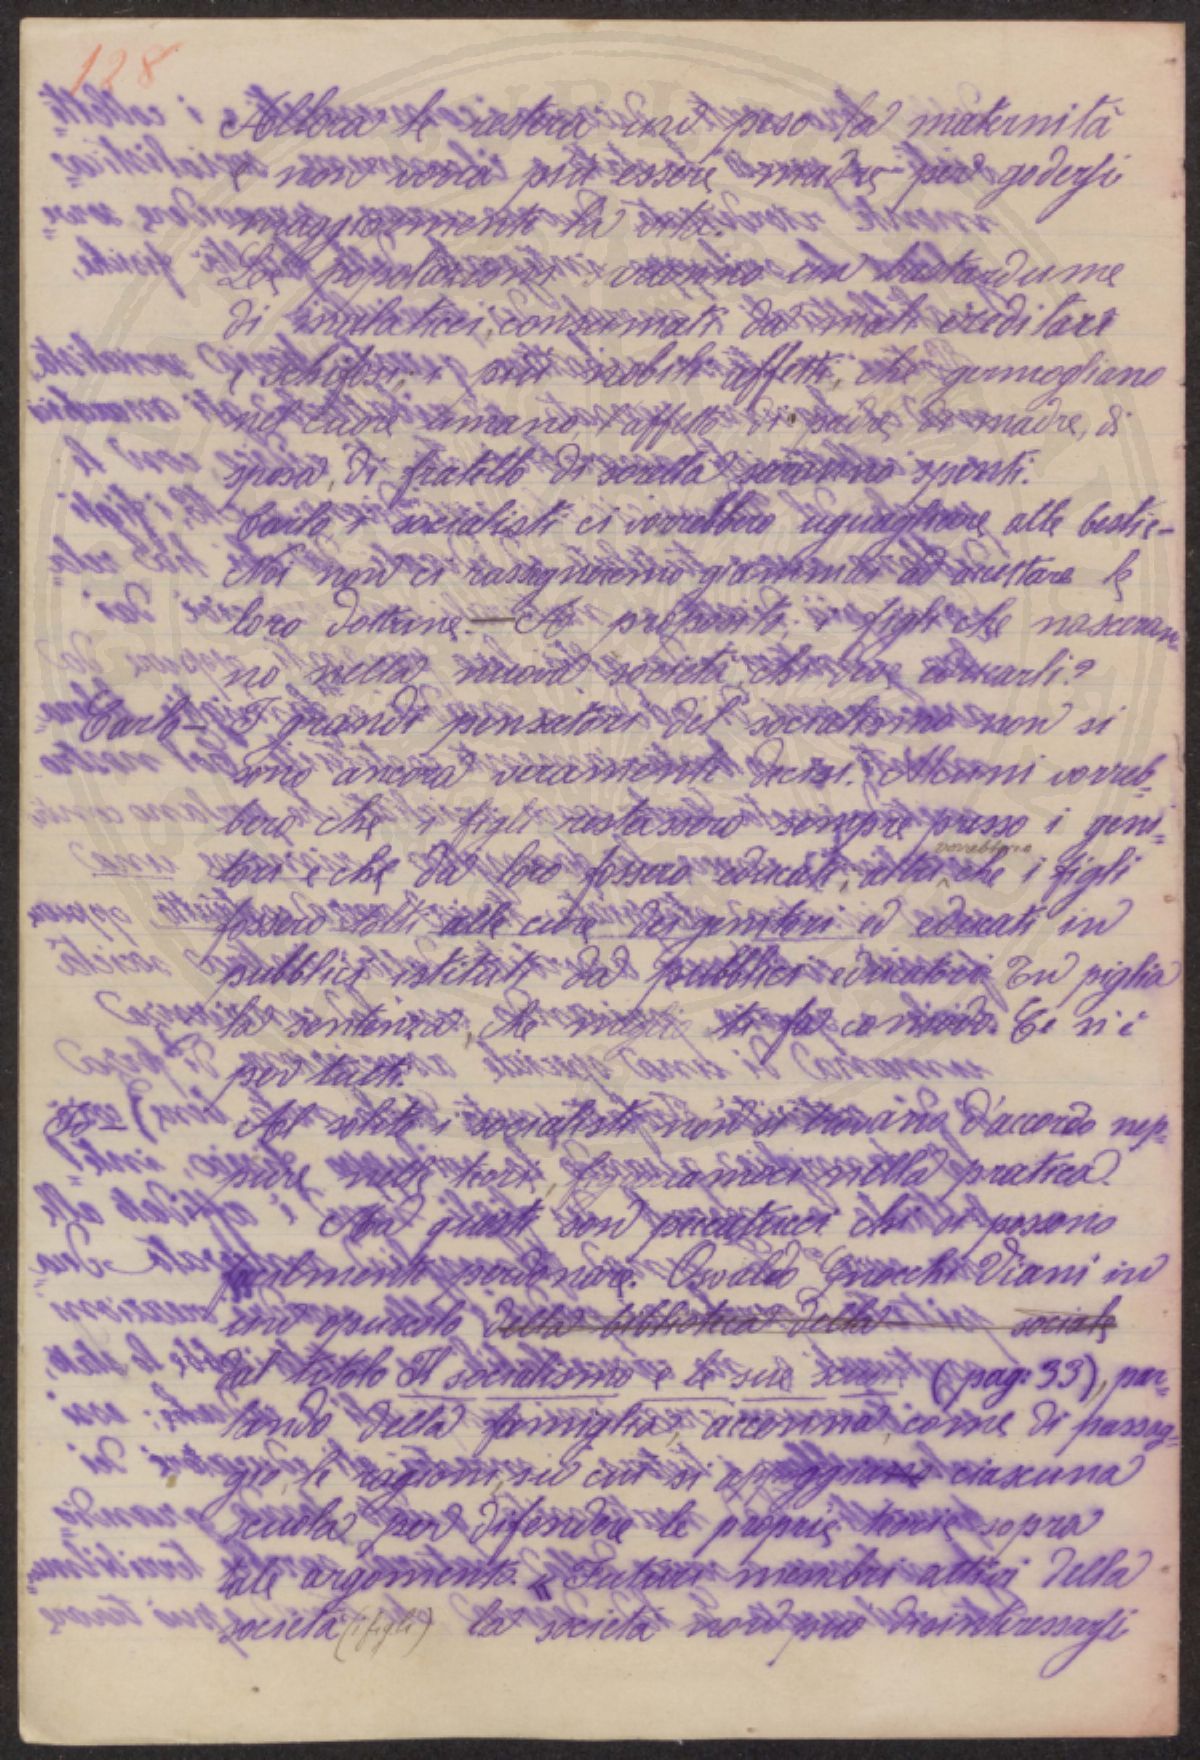 128
Allora le resterà un peso la maternità
e non vorrà più essere madre per godersi
maggiormente la vita.
Le popolazioni saranno un bastardume
di consumati da mali ereditari
e schifosi; i più nobili affetti, che germogliano
nel cuore umano, l'affetto di padre, di madre, di
sposa, di fratello di sorella saranno spenti.
Carlo, i socialisti ci vorrebbero uguagliare alle bestie –
Noi non ci rassegneremo giammai ad accettare le
loro dottrine. – A proposito, i figli che nasceran-
no nella nuova società chi deve educarli?
Carlo – I grandi pensatori del socialismo non si
sono ancora veramente decisi. Alcuni vorreb-
bero che i figli restassero sempre presso i geni-
tori e che da loro fossero educati, altri vorrebbero che i figli
fossero tolti alle cure dei genitori ed educati in
pubblici istituti da pubblici educatori. Tu piglia
la sentenza, che meglio ti fa comodo. Ce n'è
per tutti.
Al solito i socialisti non si trovano d'accordo nep-
pure nelle teorie, figuriamoci nella pratica.
Ma questi son peccatucci che si possono
facilmente perdonare. Osvaldo Gnocchi Viani in
un opuscolo della biblioteca della sociale
dal titolo Il socialismo e le sue scuole (pag: 33), par-
lando della famiglia, accenna, come di passag-
gio, le ragioni, su cui si appoggia ciascuna
scuola per difendere le proprie teorie sopra
tale argomento. "Futuri membri attivi della
società (i figli) la società non può disinteressarsi